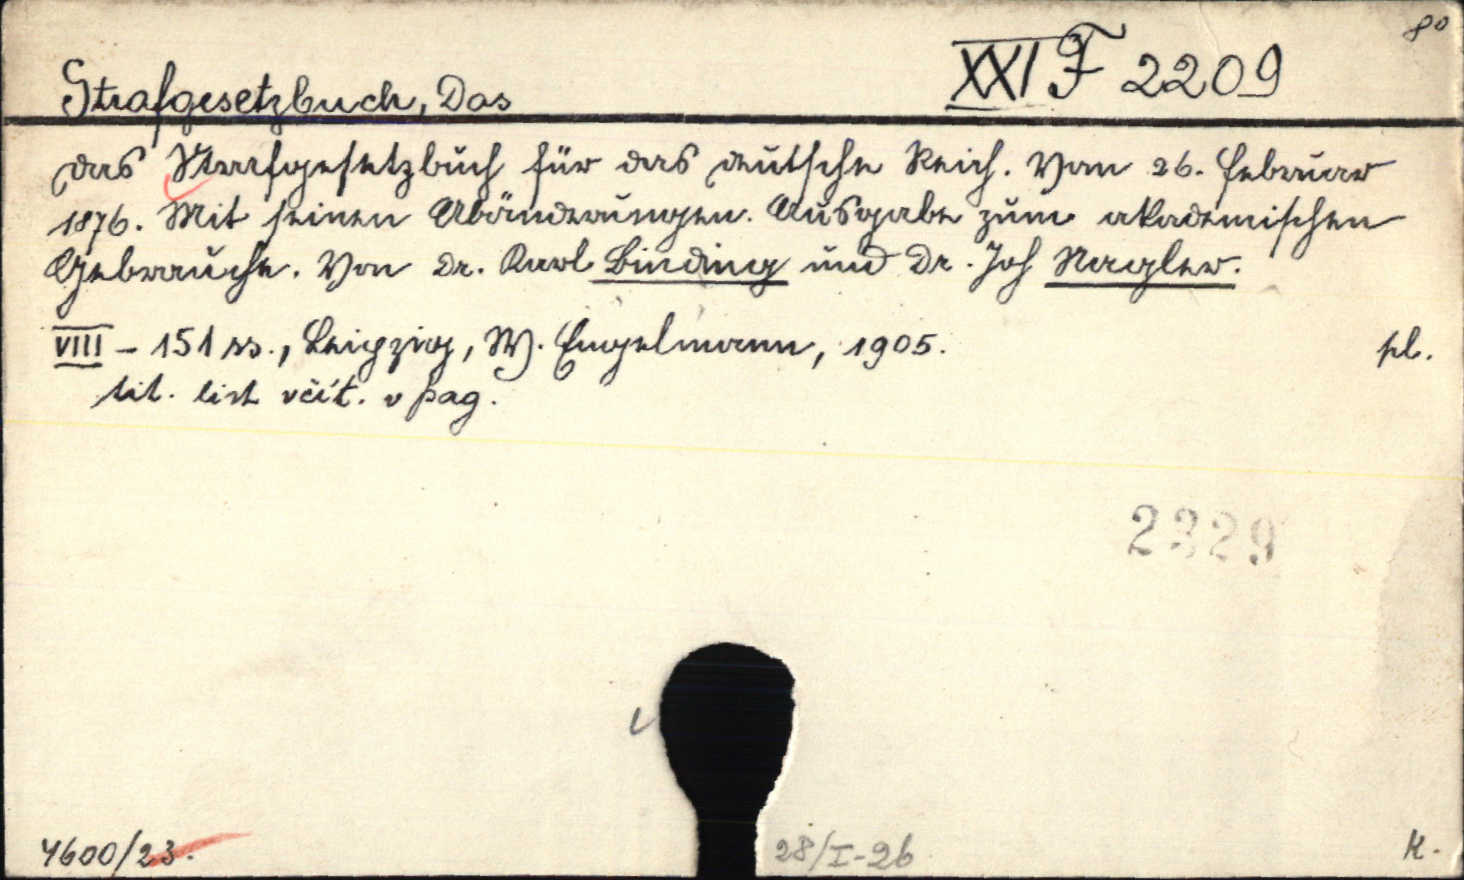 8°
Strafgesetzbuch, Das
XXI F 2209
Das Strafgesetzbuch für das deutsche Reich. Vom 26. Februar
1876. Mit seinen Abänderungen. Ausgabe zum akademischen
Gebrauche. Von Dr. Karl Binding und Dr. Joh Nagler.
VIII - 151 ss., Leipzig, W. Engelmann, 1905.
pl.
tit. list včít. v pag.
2329
4600/23.
28/I-26
K.